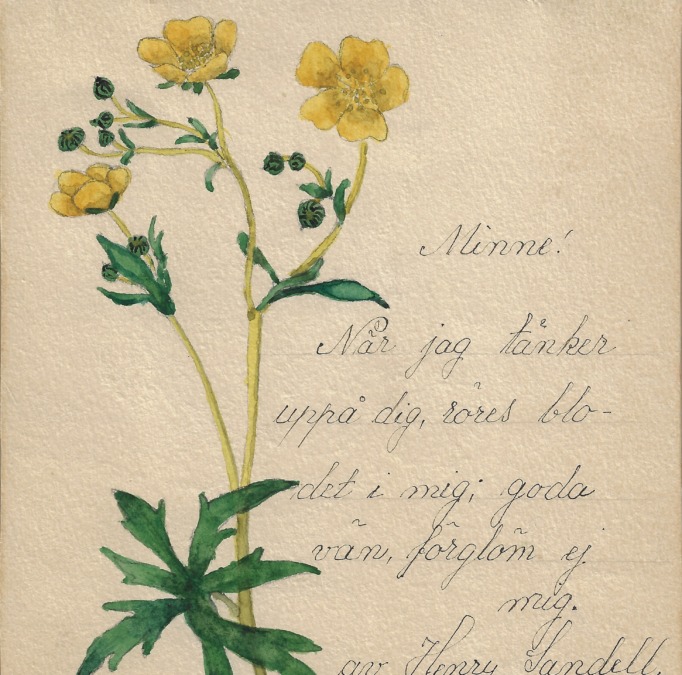 Minne!
När jag tänker
uppå dig, röres blo-
det i mig; goda
vän, förglöm ej
mig.
av Henry Sandell.